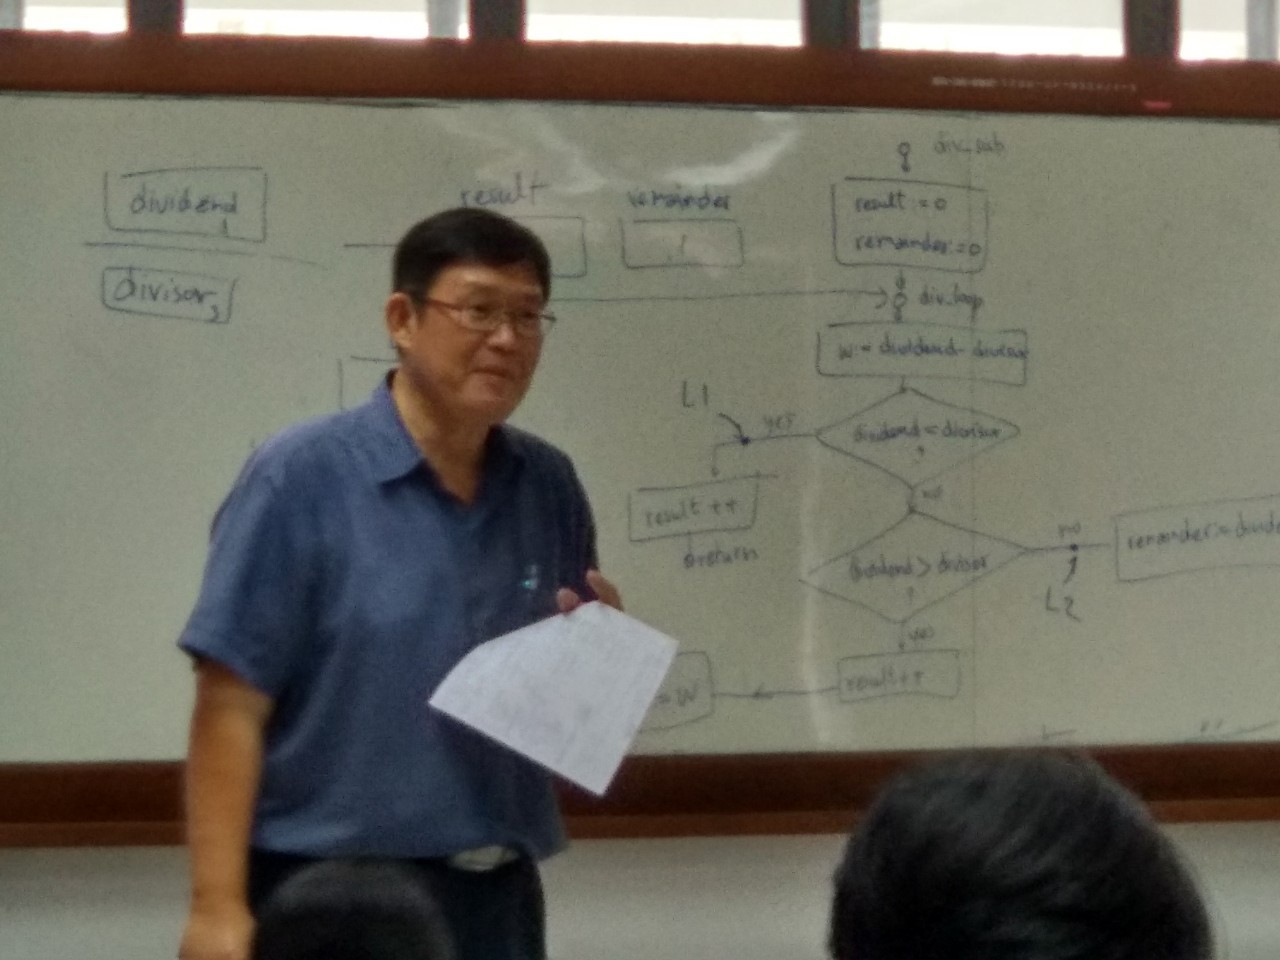 dividend
divisor
result
remainder
div_sub
result = 0
remainder = 0
div_loop
W = dividend - divisor
L1
yes
dividend = divisor
?
no
result ++
return
dividend > divisor
?
no
L2
remainder = divide
yes
result ++
= W